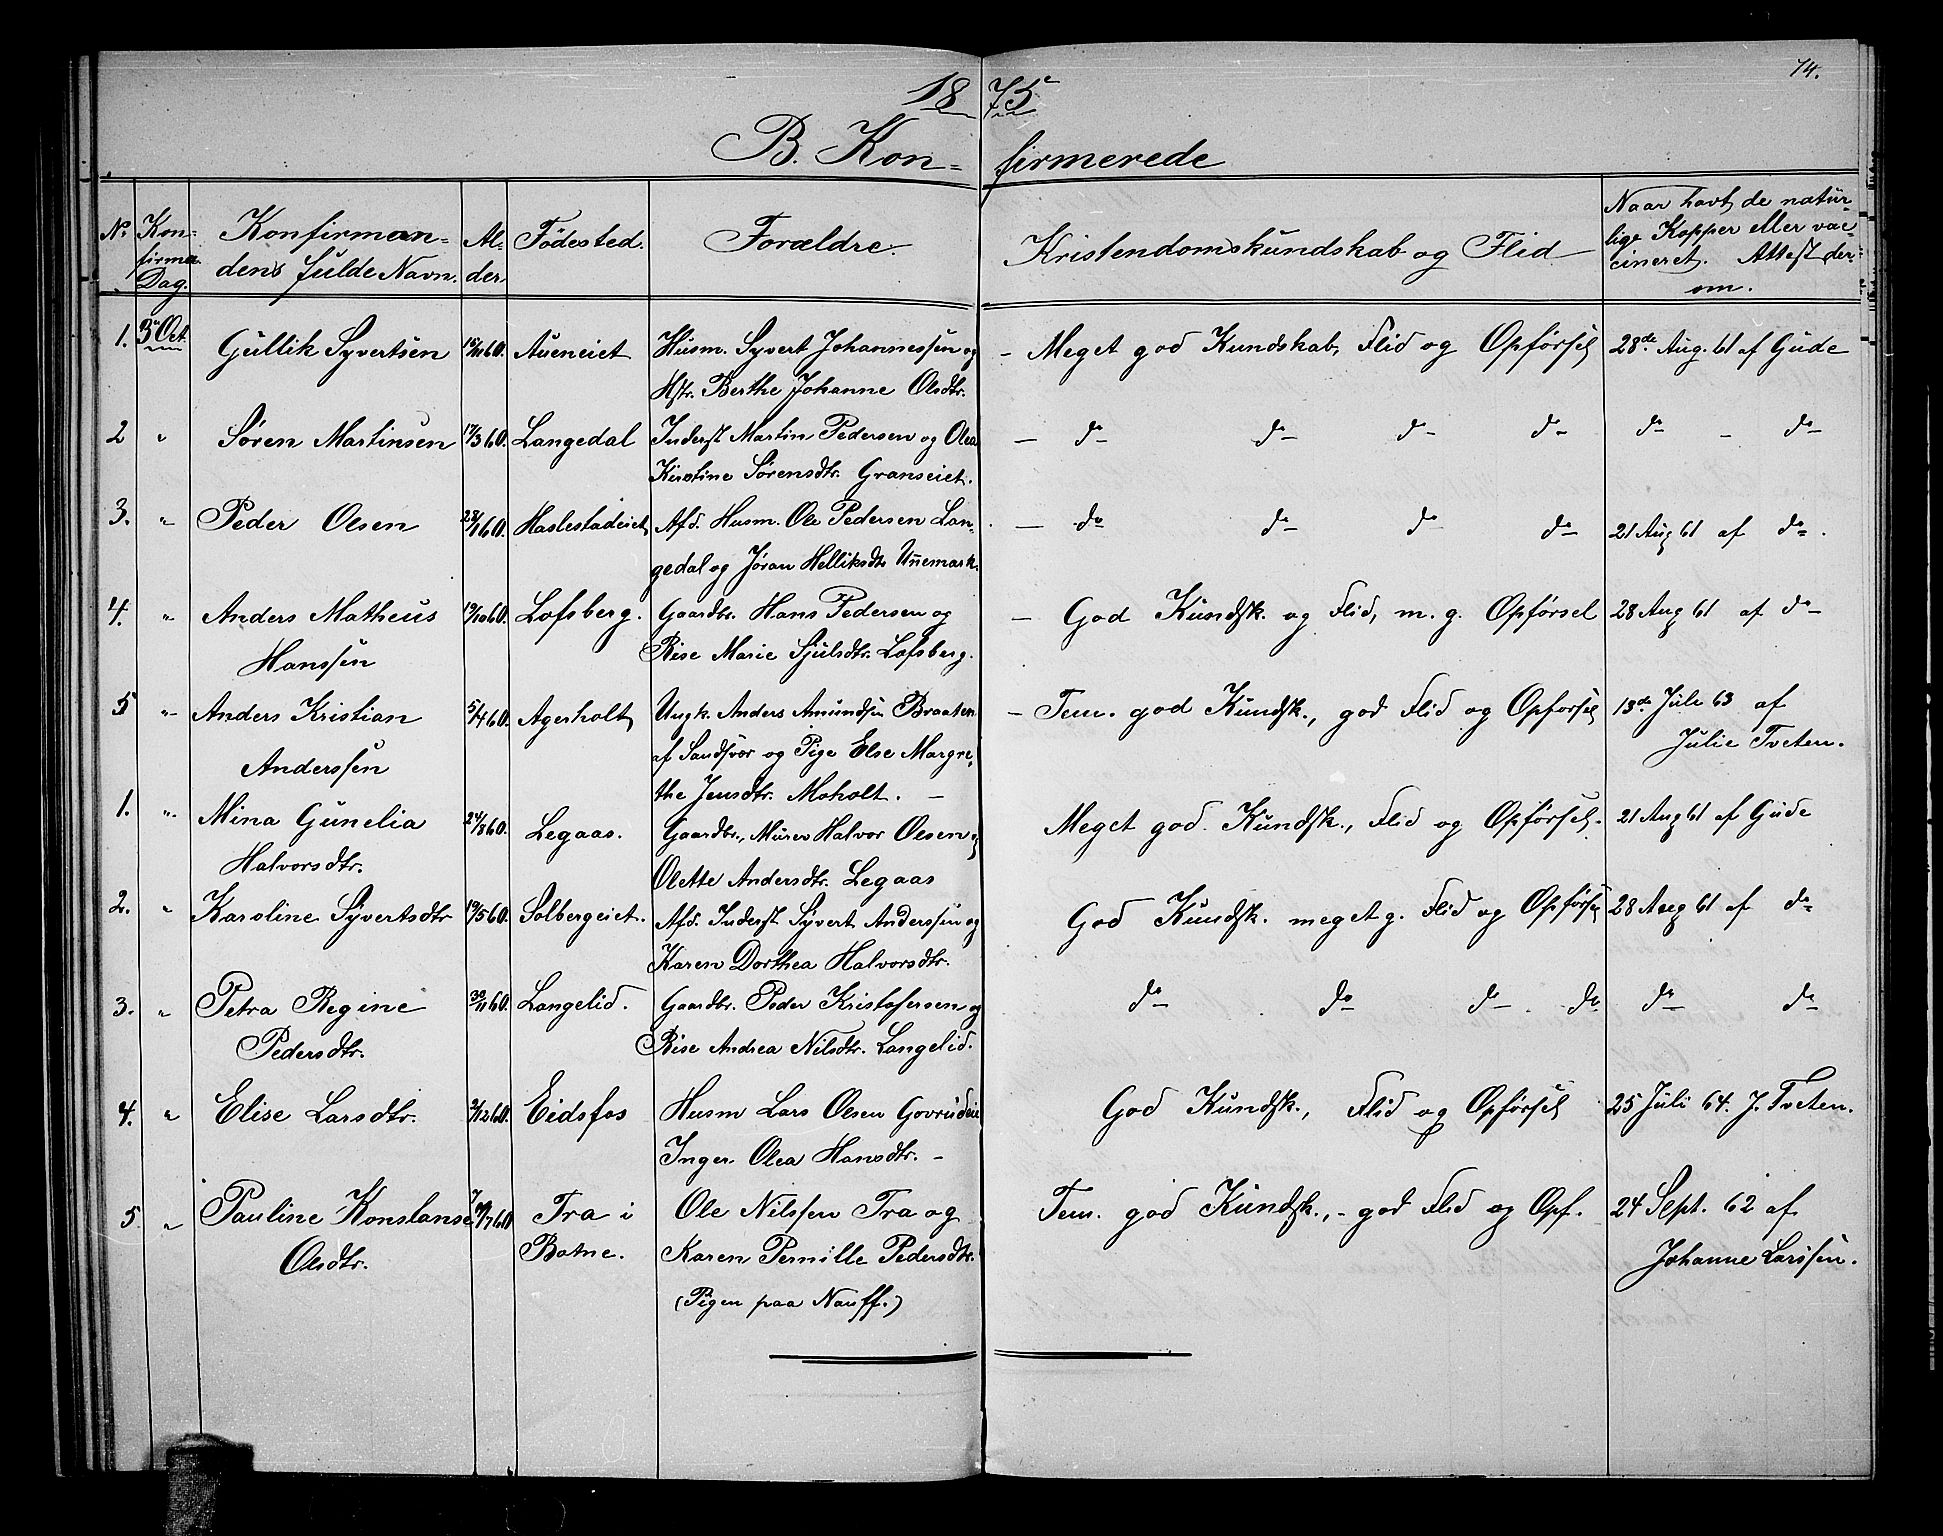 74.
18 75
B. Kon- firmerede
No. Kon-firma. Dag. Konfirman-dens fulde Navn. Al-der Födested. Forældre. Kristendomskundskab og Flid Naar havt de natur-lige Kopper eller vac-cineret. Attest der-om.
1. 3 Oct. Gullik Syvertsen 60. Aueneiet Husm. Syvert Johannessen og - Meget god Kundskab, Flid og Opførsel 28de Aug. 61 af Gude
Hstr. Berthe Johanne Olsdtr.
2 " Søren Martinsen 17/3 60. Langedal Inderst Martin Pedersen og Olea - do - do - do - do - do - do -
Kirstine Sørensdtr. Granseiet.
3. " Peder Olsen 60. Haslestadeiet Afd. Husm. Ole Pedersen Lan- - do - do - do - do - 21 Aug 61 af do.
gedal og Jøran Helliksdtr Unnemark.
4. " Anders Matheus 19/10 60. Lofsberg. Gaardbr. Hans Pedersen og - God Kundsk. og Flid, m. g. Opførsel 28 Aug 61 af do -
Hanssen Rise Marie Sjulsdtr. Lofsberg.
5 " Anders Kristian 5/4 60. Agerholt Ungk. Anders Amundsen Braaten - Tem. god Kundsk., god Flid og Opførsel 13de Juli 63 af
Anderssen af Sandsvær og Pige Else Margre- Julie Tveten.
the Jensdtr. Moholt. -
1. " Mina Gunelia 24/8 60. Legaas. Gaardbr., Murer Halvor Olsen og Meget god Kundsk., Flid og Opførsel. 21 Aug 61 af Gude
Halvorsdtr. Olette Andersdtr. Legaas
2. " Karoline Syvertsdtr 19/5 60. Solbergeiet. Afd. Inderst Syvert Anderssen og God Kundsk. meget g. Flid og Opførsel 28 Aug 61 af do
Karen Dorthea Halvorsdtr.
3. " Petra Regine 30/11 60. Langelid. Gaardbr. Peder Kristofersen og do - do - do - do do - do -
Pedersdtr. Rise Andrea Nilsdtr. Langelid.
4. " Elise Larsdtr. 2/12 60. Eidsfos Husm Lars Olsen Govrudeie God Kundsk., Flid og Opførsel 25 Juli 64. J. Tveten.
Inger Olea Hansdtr. -
5. " Pauline Konstanse 7 60 Tra i Ole Nilssen Tra og Tem. god Kundsk., - god Flid og Opf. 24 Sept. 62 af
Olsdtr. Botne. Karen Pernille Pedersdtr. Johanne Larssen.
(Pigen paa Nauff.)